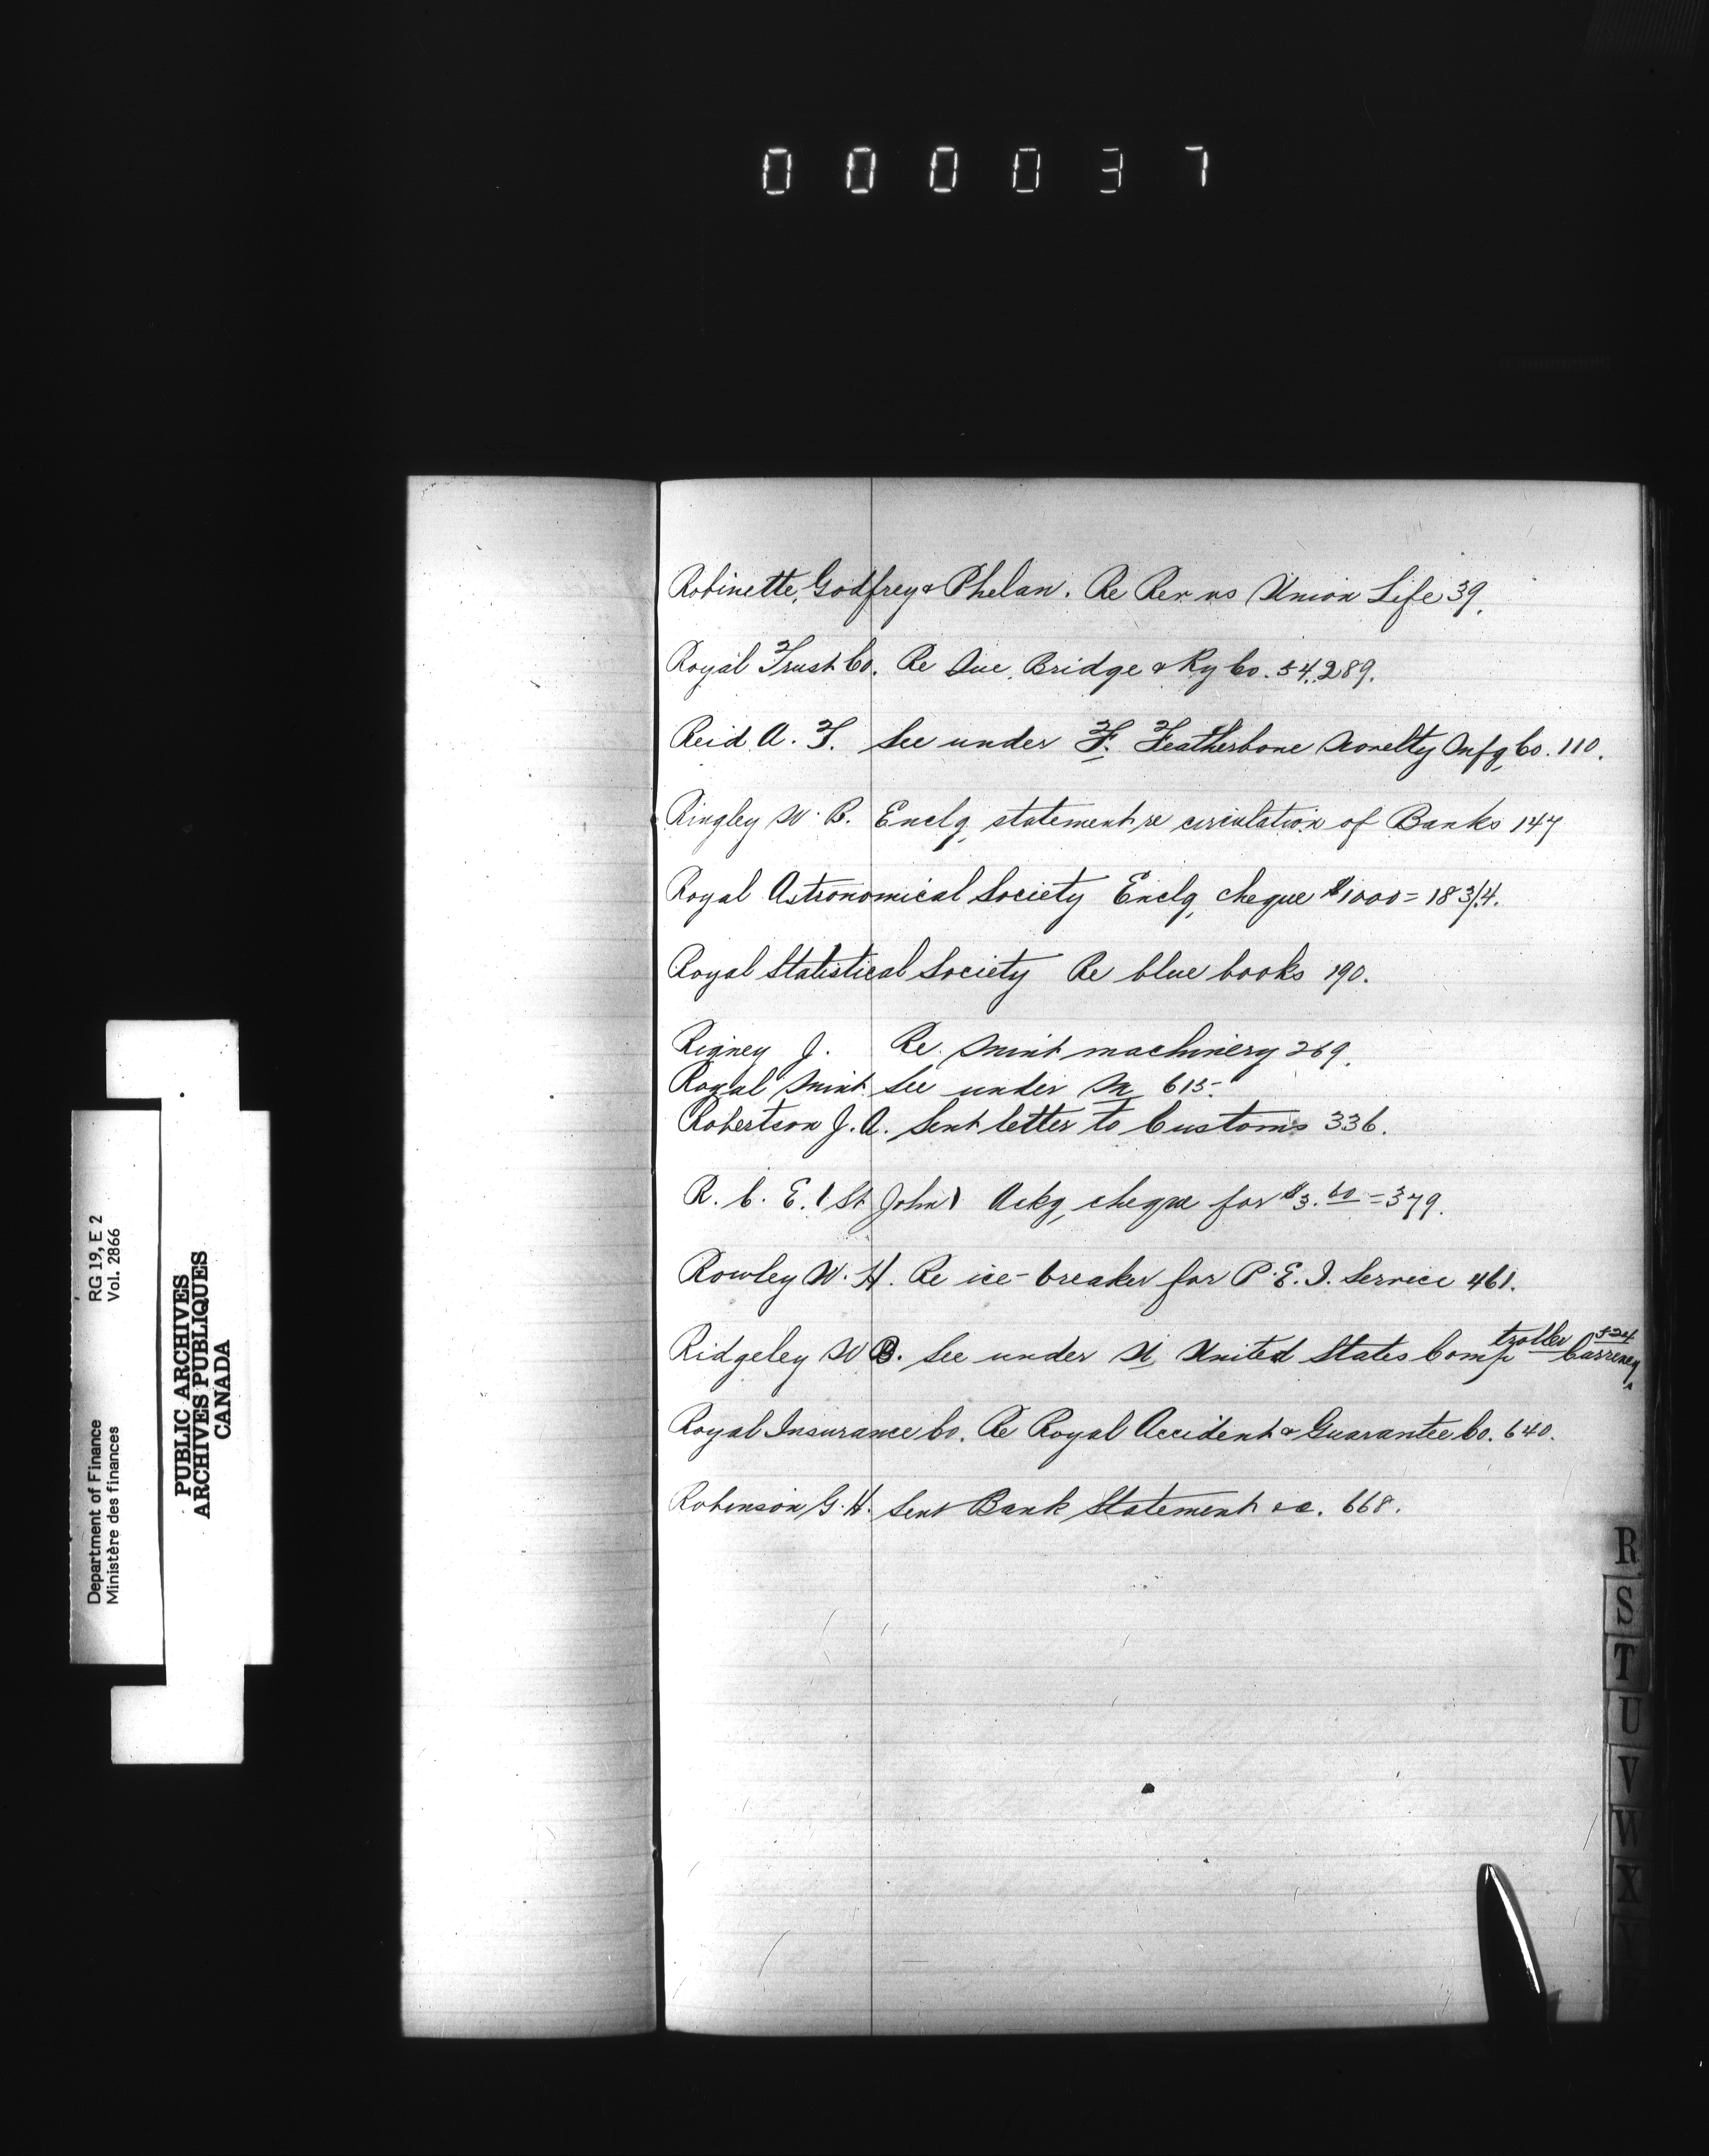 000037
Robinette, Godfrey & Phelan. Re Rex vs Union Life 39.
Royal Trust Co. Re Que. Bridge & Ry Co. 54, 289.
Reid A. T. See under F. Featherbone Novelty Mnfg Co. 110.
Ringley W. B. Enclg statement re circulation of Banks 147
Royal Astronomical Society Enclg cheque $1000 = 183/4.
Royal Statistical Society Re blue books 190.
Rigney J. Re Mint machinery 269.
Royal Mint See under M 615.
Robertson J. A. Sent letter to Customs 336.
R. C. E. (St John) Ackg cheque for $3.60 = 379.
Rowley W. H. Re ice-breaker for P. E. I. Service 461.
Ridgeley W B. See under U, United States Comptroller Currency 524
Royal Insurance Co. Re Royal Accident & Guarantee Co. 640.
Robinson G. H. Sent Bank Statement &c. 668.
R
S
T
U
V
W
X
Department of Finance RG 19, E 2
Ministère des finances Vol. 2866
PUBLIC ARCHIVES
ARCHIVES PUBLIQUES
CANADA